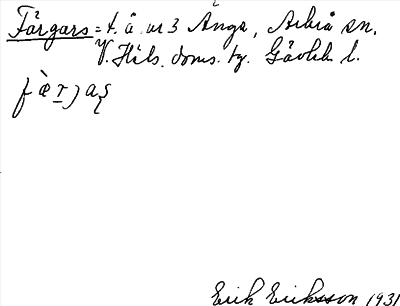 Färgars = t. å nr 3 Änga, Arbrå sn.
V. Häls. doms. tg. Gävleb. l.
fæ̀rjaş
Erik Eriksson 1931